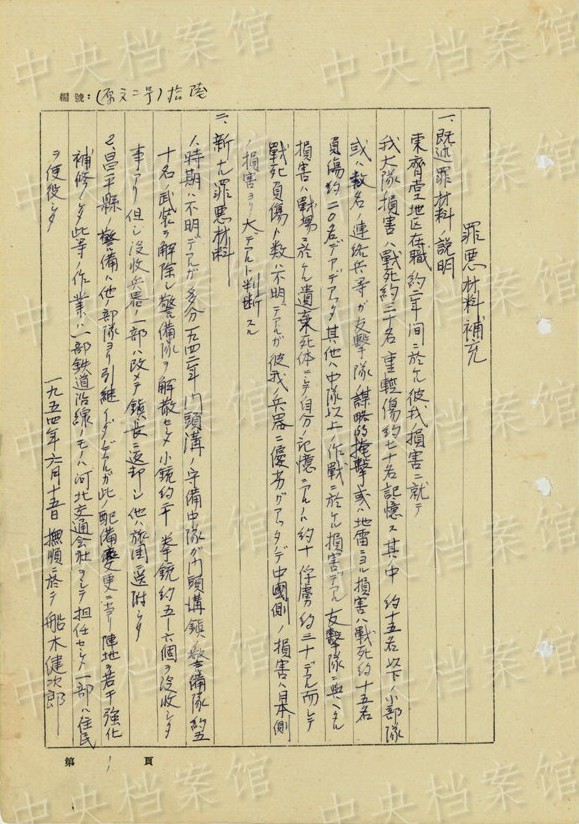 編號:(原文二号)拾陸
罪悪材料補充
一、既述罪材料ノ説明
東齊堂地区在職約二年間ニ於ケル彼我ノ損害ニ就テ
我大隊ノ損害ハ戦死約三十名 重軽傷約七十名記憶ス 其ノ中 約十五名以下ノ小部隊
或ハ数名ノ連絡兵等ガ友撃隊ノ謀略的掩撃或ハ地雷ニヨル損害ハ戦死約十五名
負傷約二〇名デアッタ 其他ハ中隊以上ノ作戦ニ於ケル損害デアル 友撃隊ニ與ヘタル
損害ハ戦場ニ於ケル遺棄死体ニシテ自分ノ記憶ニアルノハ約十 俘虜約三十デアル而シテ
戦死負傷ノ数ハ不明デアルガ彼我ノ兵器ニ優劣ガアッタノデ中國側ノ損害ハ日本側
ノ損害ヨリ大デアルト判断スル
二、新ナル罪悪材料
1、時期ハ不明デアルガ多分一九四二年門頭溝ノ守備中隊ガ門頭溝鎮ノ警備隊約五
十名ノ武装ヲ解除シ警備隊ヲ解散セシメ小銃約千 拳銃約五−六個ヲ没収シタ
事アリ 但シ没收兵器ノ一部ハ改メテ鎮長ニ返却シ他ハ旅団ニ送附シタ
2、昌平縣ノ警備ハ他ノ部隊ヨリ引継イダノデアルガ此ノ配備変更ニ当リ陣地ヲ若干強化
補修シタ 此等ノ作業ハ一部鉄道沿線ノモノハ河北交通会社ヲシテ担任セシメ一部ハ住民
ヲ使役シタ
一九五四年六月十五日 撫順ニ於テ 船木健次郎
第 1 頁
中央档案馆